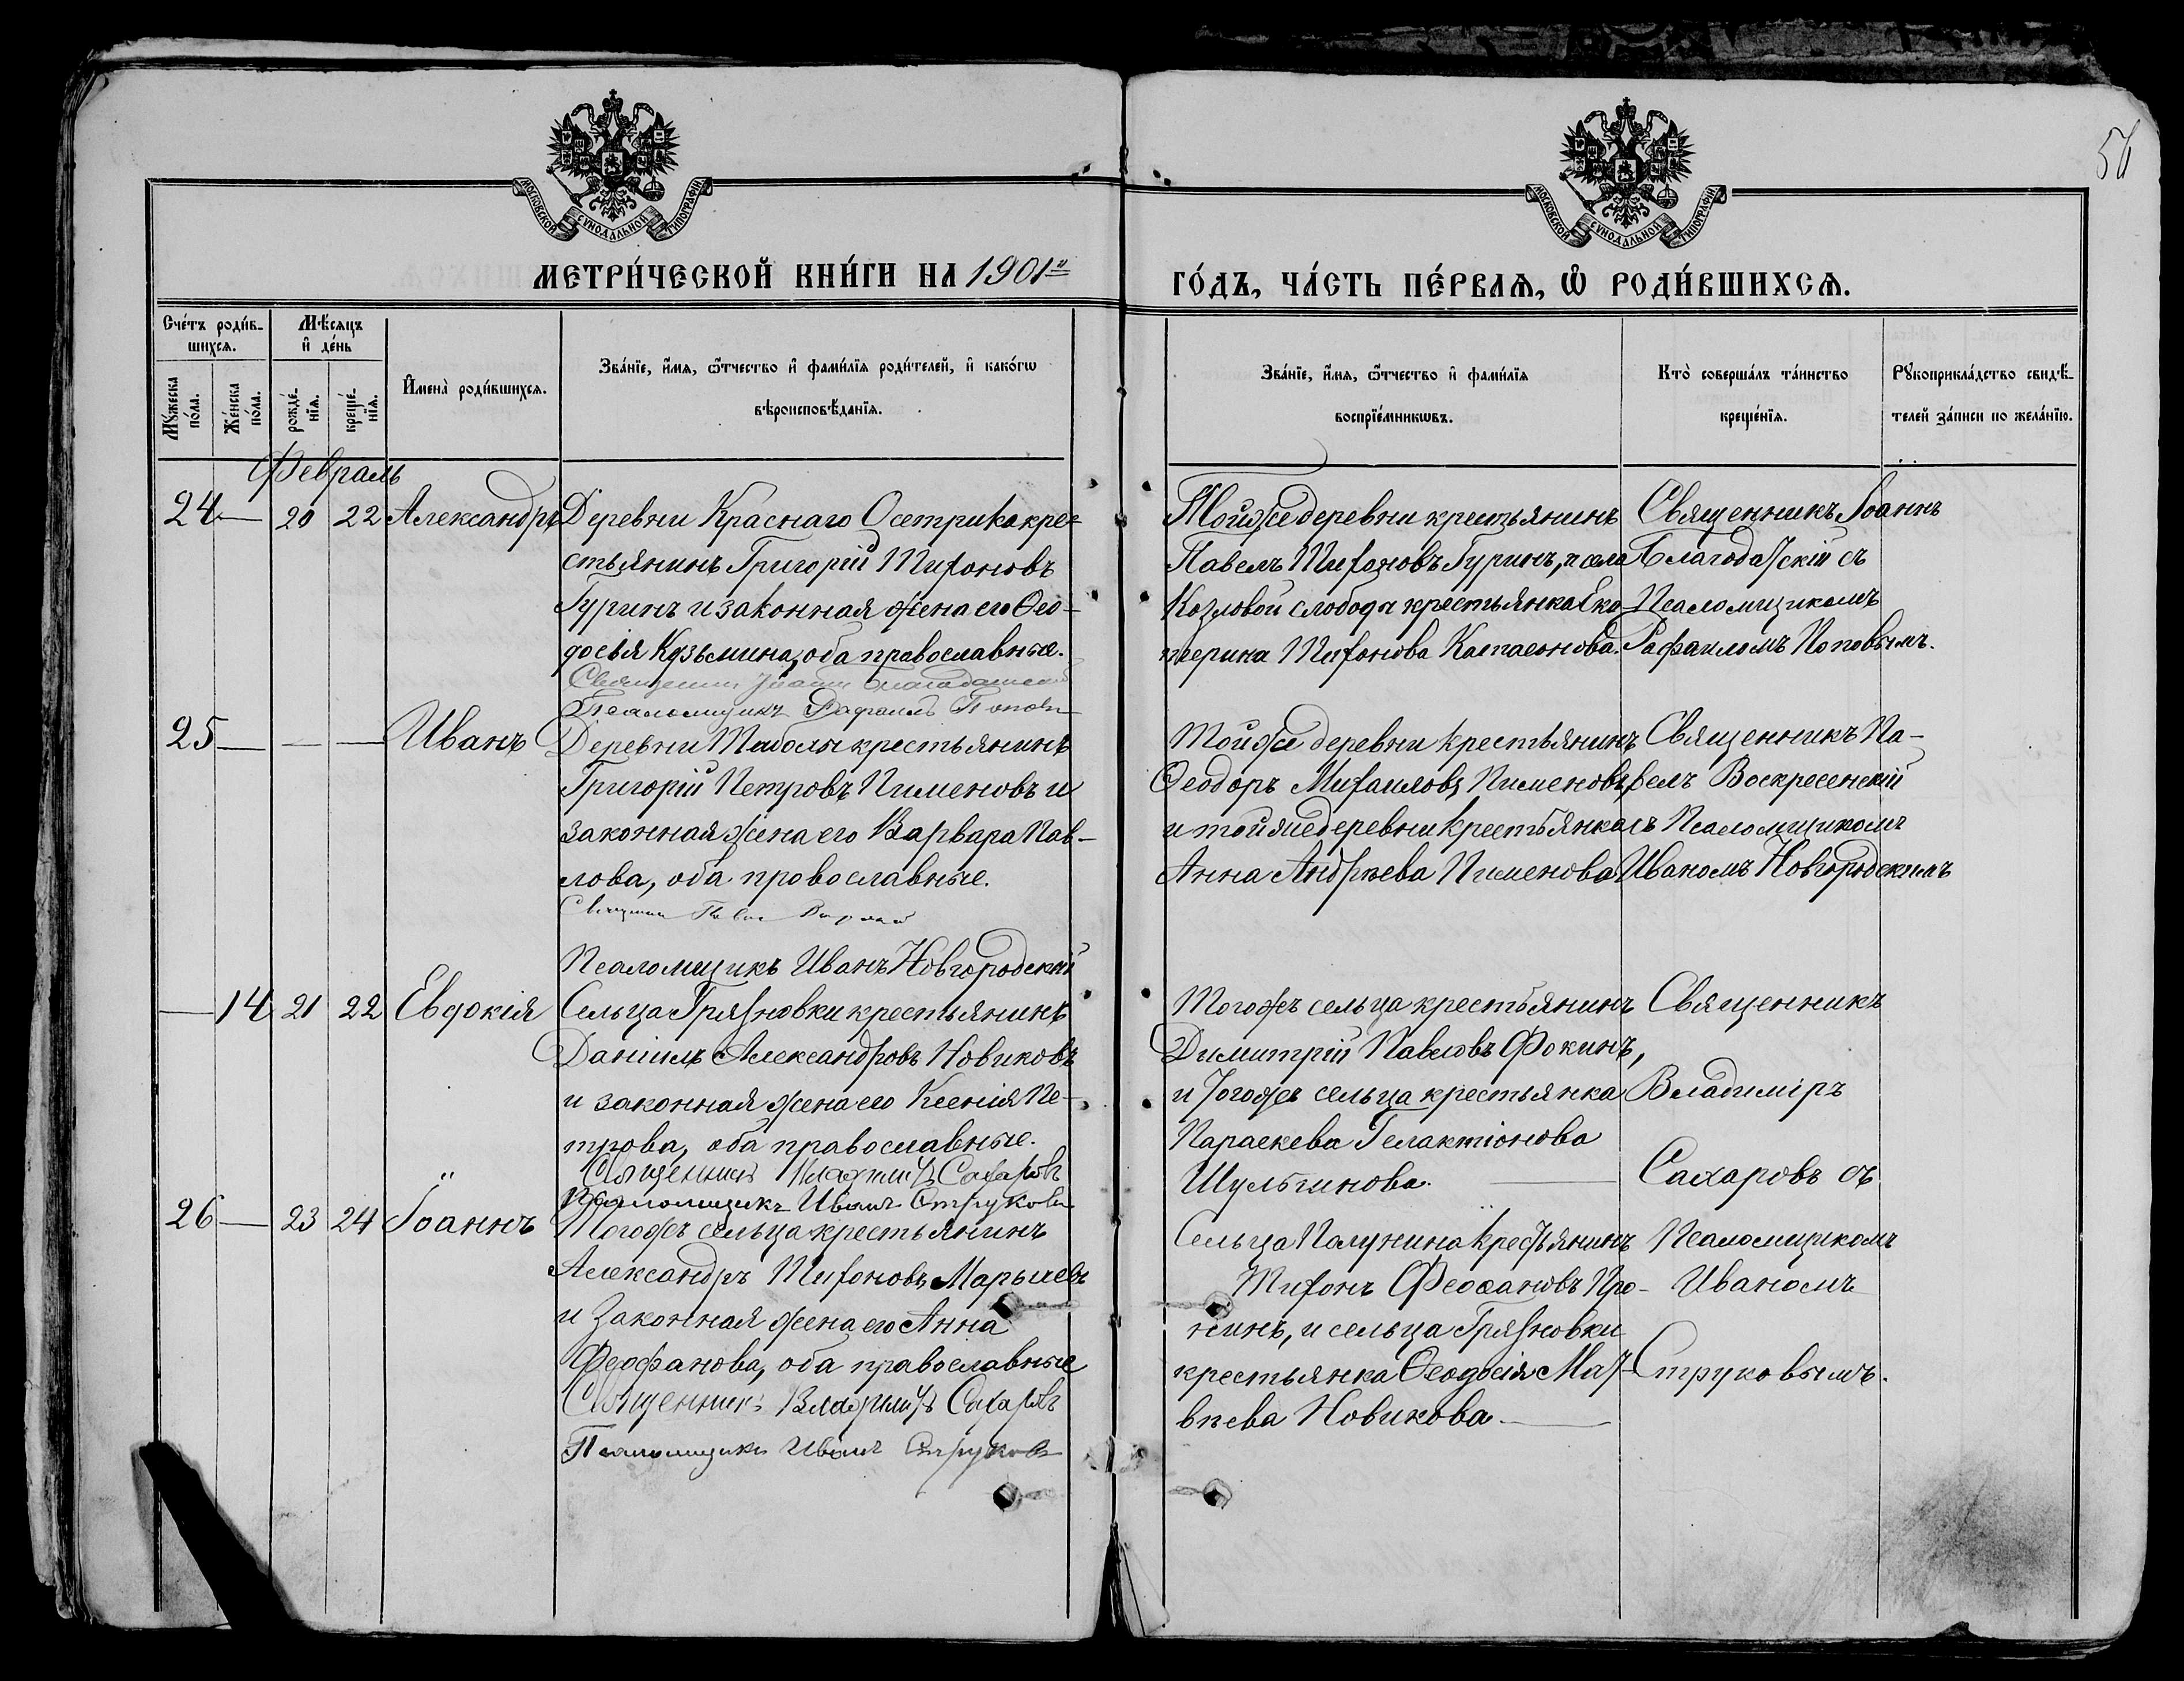 56
МОСКОВСКОЙ СѴНОДАЛЬНОЙ ТИПОГРАФІИ.
МОСКОВСКОЙ СѴНОДАЛЬНОЙ ТИПОГРАФІИ.
МЕТРИ́ЧЕСКОЙ КНИ́ГИ НА 1901й
ГО́ДЪ, ЧА́СТЬ ПЕ́РВАѦ, Ѽ РОДИ́ВШИХСѦ.
Сче́тъ роди́в-
шихсѧ.
Мѣ́сѧцъ
и҆ де́нь
Мꙋ́жеска
по́ла.
Же́нска
по́ла.
рожде́-
нїѧ.
креще́-
нїѧ.
И҆мена̀ роди́вшихсѧ.
Зва́нїе, и҆́мѧ, ѻ҆́тчество и҆ фами́лїѧ роди́телей, и҆ како́гѡ
вѣроисповѣ́данїѧ.
Зва́нїе, и҆́мѧ, ѻ҆́тчество и҆ фами́лїѧ
воспрїе́мникѡвъ.
Кто̀ соверша́лъ та́инство
креще́нїѧ.
Рꙋкоприкла́дство свидѣ́-
телей за́писи по жела́нїю.
Февраль
24 — 20 22 Александръ
Деревни Краснаго Осетрика кре-
стьянинъ Григорій Тихоновъ
Гуринъ и законная жена его Ѳео-
досія Кузьмина, оба православные.
Священникъ Іоаннъ Благодатскій
Псаломщикъ Рафаилъ Поповъ
Тойже деревни крестьянинъ
Павелъ Тихоновъ Гуринъ, и села
Козловой слободы крестьянка Ека-
терина Тихонова
Священникъ Іоаннъ
Благодатскій съ
Псаломщикомъ
Рафаиломъ Поповымъ.
25 — — — Иванъ
Деревни Таболы крестьянинъ
Григорій Петровъ Пименовъ и
законная жена его Варвара Пав-
лова, оба провославные.
Священникъ Павелъ
Псаломщикъ Иванъ Новгородскій
Тойже деревни крестьянинъ
Ѳеодоръ Михаиловъ Пименовъ,
и тойже деревни крестьянка
Анна Андреева Пименова
Священникъ Па-
велъ Воскресенскій
съ Псаломщикомъ
Иваномъ Новгородскимъ
— 14 21 22 Евдокія
Сельца Грязновки крестьянинъ
Даніилъ Александровъ Новиковъ
и законная жена его Ксенія Пе-
трова, оба православные.
Священникъ Владиміръ Сахаровъ
Псаломщикъ Иванъ Струковъ
Тогожъ сельца крестьянинъ
Димитрій Павловъ Фокинъ,
и тогожъ сельца крестьянка
Параскева Галактіонова
Шульгинова.
Священникъ
Владиміръ
Сахаровъ съ
26 — 23 24 Іоаннъ
Тогожъ сельца крестьянинъ
Александръ Тихоновъ Марычевъ
и законная жена его Анна
Феофанова, оба православные
Священникъ Владиміръ Сахаровъ
Псаломщикъ Иванъ Струковъ
Сельца Палунина крестьянинъ
Тихонъ Феофановъ Про-
нинъ, и сельца Грязновки
крестьянка Ѳеодосія Мат-
вѣева Новикова.
Псаломщикомъ
Иваномъ
Струковымъ.